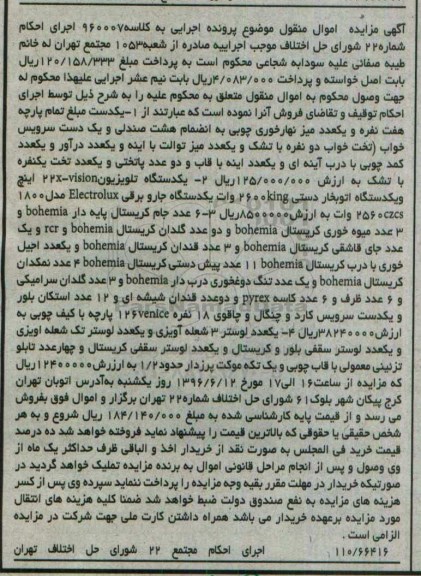 آگهی مزایده اموال منقول موضوع پرونده اجرایی به کلاسه۹۶۰۰۰۷ اجرای احکام
شماره۲۲۰ شورای حل اختلاف موجب اجراییه صادره از شعبه۱۰۵۳ مجتمع تهران له خانم
طیبه صفائی علیه سودابه شجاعی محکوم است به پرداخت مبلغ ۱۲۰/۱۵۸/۳۳۳ریال
بابت اصل خواسته و پرداخت ۴/۰۸۳/۰۰۰ریال بابت نیم عشر اجرایی علیهذا محکوم له
جهت وصول محکوم به اموال منقول متعلق به محکوم علیه را به شرح ذیل توسط اجرای
احکام توقیف و تقاضای فروش آنرا نموده است که عبارتند از ۱-یکدست مبلغ تمام پارچه
هفت نفره و یکعدد میز نهارخوری چوبی به انضمام هشت صندلی و یک دست سرویس
خواب (تخت خواب دو نفره با تشک و یکعدد میز توالت با اینه و یکعدد درآور و یکعدد
کمد چوبی با درب آینه ای و یکعدد اینه با قاب و دو عدد پاتختی و یکعدد تخت یکنفره
با تشک به ارزش ۱۲۵/۰۰۰/۰۰۰ریال ۲- یکدستگاه تلویزیون۲۲x-vision اینچ
ویکدستگاه اتوبخار دستی ۲۶۰۰king وات یکدستگاه جارو برقی Electrolux مدل۱۸۰۰
۲۵۶۰czcs وات به ارزش۸۵۰۰۰۰۰ریال ۳-۶ عدد جام کریستال پایه دار bohemia و
۳ عدد میوه خوری کریستال bohemia و دو عدد گلدان کریستال bohemia و rcr و یک
عدد جای قاشقی کریستال bohemia و ۳ عدد قندان کریستال bohemia و یکعدد اجیل
خوری با درب کریستال bohemia ۱۱ عدد پیش دستی کریستال bohemia ۴ عدد نمکدان
کریستال bohemia و یک عدد تنگ دوغخوری درب دار bohemia و ۳ عدد گلدان سرامیکی
و ۶ عدد ظرف و ۶ عدد کاسه pyrex و دوعدد قندان شیشه ای و ۱۲ عدد استکان بلور
و یکدست سرویس کارد و چنگال و چاقوی ۱۸ نفره ۱۲۶venice پارچه با کیف چوبی به
ارزش۳۸۲۴۰۰۰۰ریال ۴- یکعدد لوستر ۳ شعله آویزی و یکعدد لوستر تک شعله اویزی
و یکعدد لوستر سقفی بلور و کریستال و یکعدد لوستر سقفی کریستال و چهارعدد تابلو
تزئینی معمولی با قاب چوبی و یک تکه موکت پرزدار حدود۱/۲ به ارزرش۱۲۴۰۰۰۰۰ریال
که مزایده از ساعت۱۶ الی۱۷ مورخ ۱۳۹۶/۶/۱۲ روز یکشنبه به‌آدرس اتوبان تهران
کرج پیکان شهر بلوک۶۱ شورای حل اختلاف شماره۲۲۰ تهران برگزار و اموال فوق بفروش
می رسد و از قیمت پایه کارشناسی شده به مبلغ ۱۸۴/۱۴۰/۰۰۰ ریال شروع و به هر
شخص حقیقی یا حقوقی که بالاترین قیمت را پیشنهاد نماید فروخته خواهد شد ده درصد
قیمت خرید فی المجلس به صورت نقد از خریدار اخذ و الباقی ظرف حداکثر یک ماه از
وی وصول و پس از انجام مراحل قانونی اموال به برنده مزایده تملیک خواهد گردید در
صورتیکه خریدار در مهلت مقرر بقیه وجه مزایده را پرداخت ننماید سپرده وی پس از کسر
هزینه های مزایده به نفع صندوق دولت ضبط خواهد شد ضمنا کلیه هزینه های انتقال
مورد مزایده برعهده خریدار می باشد همراه داشتن کارت ملی جهت شرکت در مزایده
الزامی است.
۱۱۰/۶۶۴۱۶ اجرای احکام مجتمع ۲۲ شورای حل اختلاف تهران